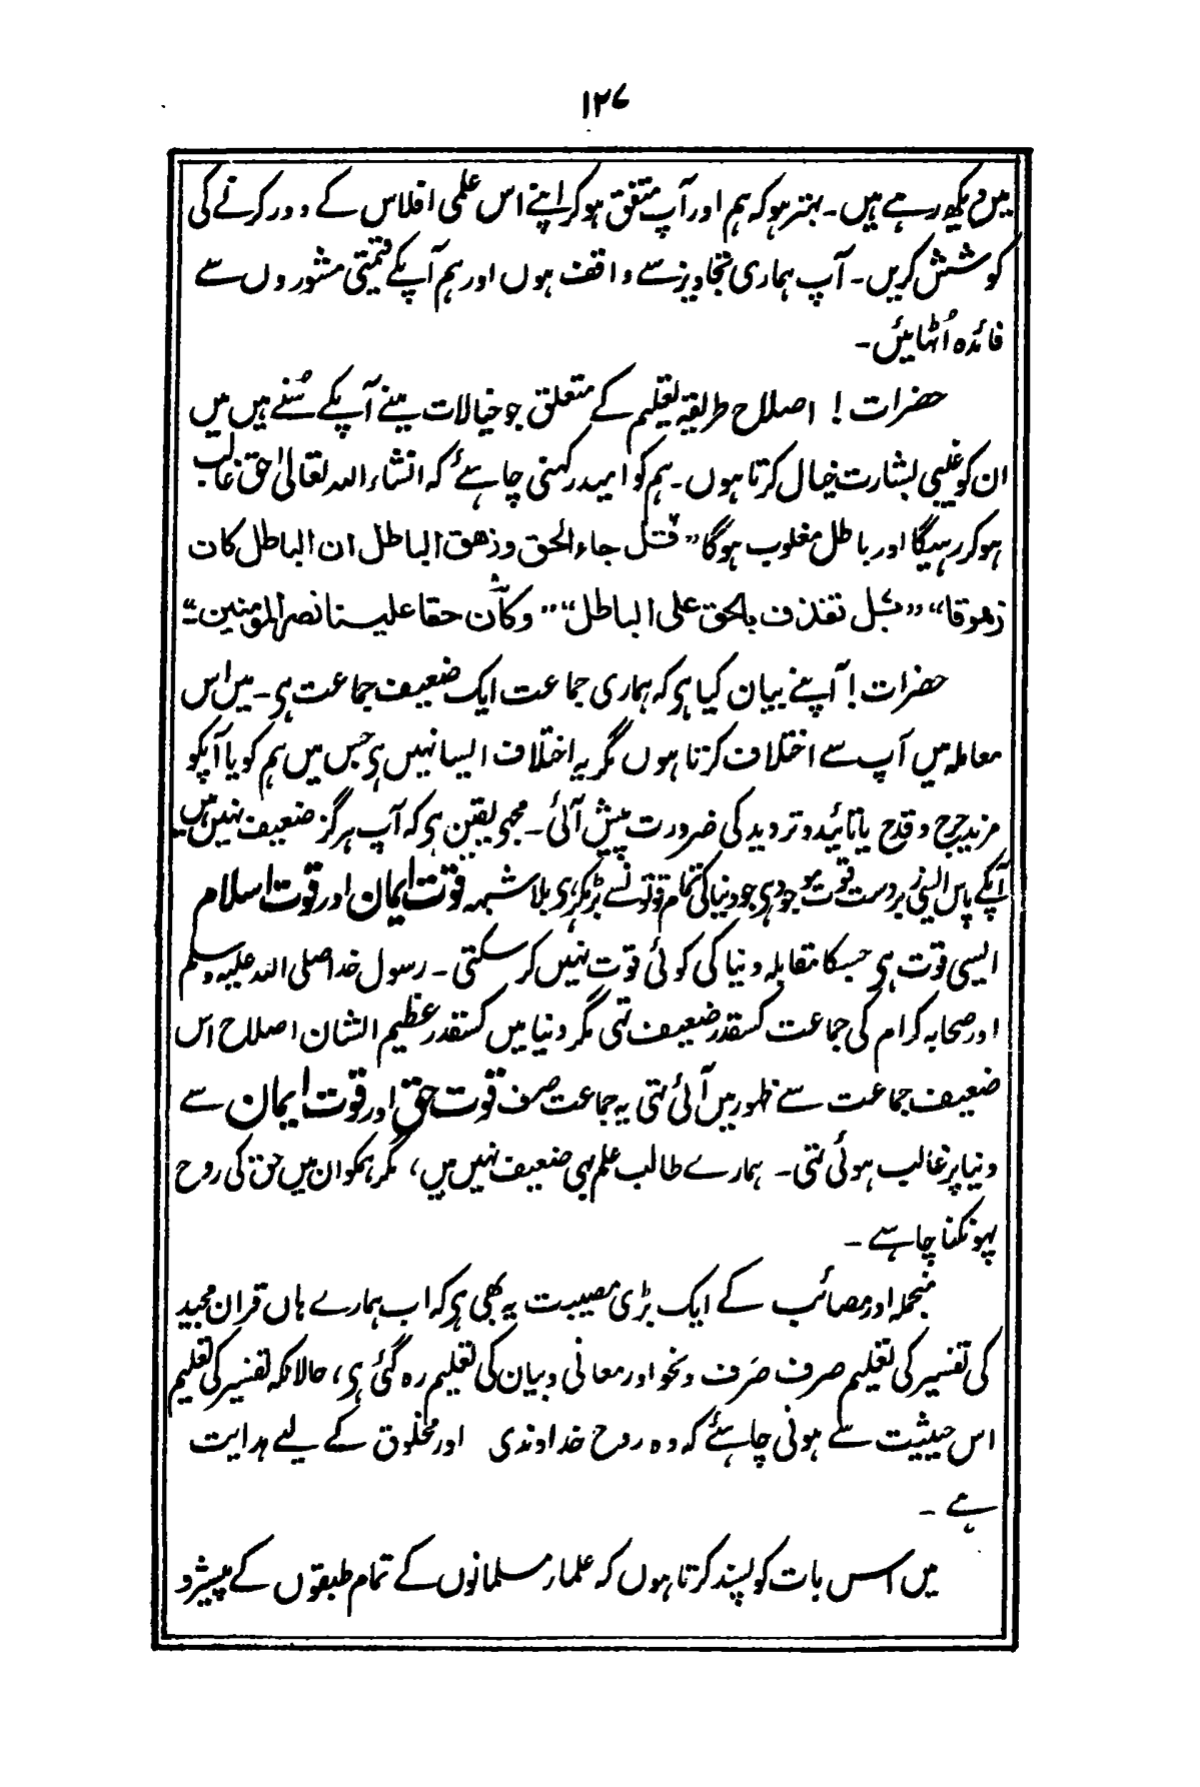 ۱۲۷
میں دیکھ رہے ہیں۔ بہتر ہو کہ ہم اور آپ متفق ہو کر اپنے اس علمی افلاس کے دور کرنے کی
کوشش کریں۔ آپ ہماری تجاویز سے واقف ہوں اور ہم آپکے قیمتی مشوروں سے
فائدہ اُٹھائیں۔
حضرات! اصلاح طریقۂ تعلیم کے متعلق جو خیالات مینے آپکے سُنے ہیں میں
ان کو غیبی بشارت خیال کرتا ہوں۔ ہم کو امید رکھنی چاہئے کہ انشاء اللہ تعالیٰ حق غالب
ہو کر رہیگا اور باطل مغلوب ہوگا ”قل جاء الحق وزھق الباطل ان الباطل کان
زھوقا“ ”بل نقذف بالحق علی الباطل“ ”وکان حقا علینا نصر المؤمنین“۔
حضرات! آپنے بیان کیا ہی کہ ہماری جماعت ایک ضعیف جماعت ہی۔ میں اس
معاملہ میں آپ سے اختلاف کرتا ہوں مگر یہ اختلاف ایسا نہیں ہی جس میں ہم کو یا آپکو
مزید جرح وقدح یا تائید و تردید کی ضرورت پیش آئی۔ مجھی یقین ہی کہ آپ ہرگز ضعیف نہیں ہیں
آپکے پاس ایسی زبردست قوت موجود ہی جو دنیا کی تمام قوتونسے بڑھکر ہی بلا شبہہ قوّت ایمان اور قوت اسلام
ایسی قوت ہی جسکا مقابلہ دنیا کی کوئی قوت نہیں کر سکتی۔ رسول خدا صلی اللہ علیہ وسلم
اور صحابہ کرام کی جماعت کسقدر ضعیف تہی مگر دنیا میں کسقدر عظیم الشان اصلاح اس
ضعیف جماعت سے ظہور میں آئی تہی یہ جماعت صرف قوت حق اور قوت ایمان سے
دنیا پر غالب ہوئی تہی۔ ہمارے طالب علم بہی ضعیف نہیں ہیں، مگر ہمکو ان میں حق کی روح
پہونکنا چاہے۔
منجملہ اور مصائب کے ایک بڑی مصیبت یہ بھی ہی کہ اب ہمارے ہاں قران مجید
کی تفسیر کی تعلیم صرف صَرف ونحو اور معانی وبیان کی تعلیم رہ گئی ہی، حالانکہ تفسیر کی تعلیم
اس حیثیت سے ہونی چاہئے کہ وہ روح خداوندی اور مخلوق کے لیے ہدایت
ہے۔
میں اس بات کو پسند کرتا ہوں کہ علماء مسلمانوں کے تمام طبقوں کے پیشرو